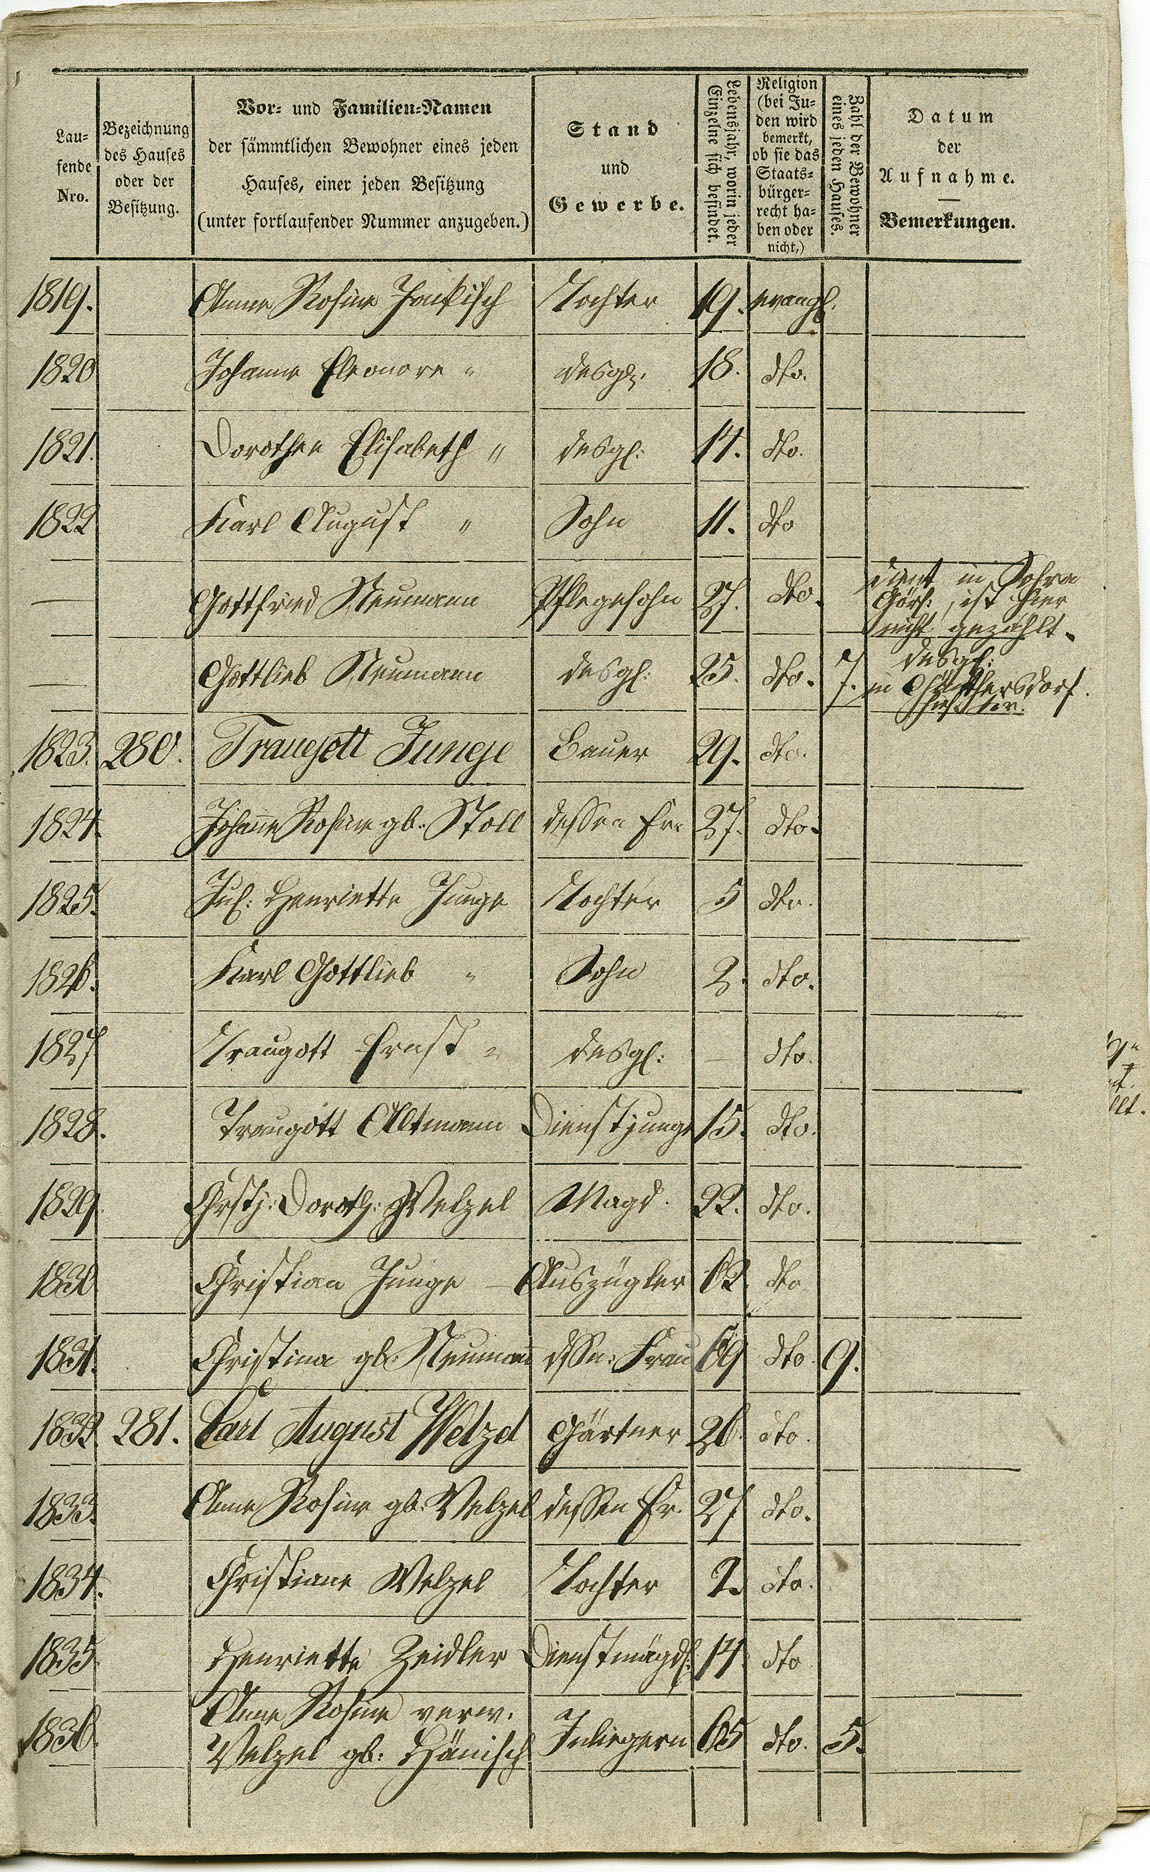 Lau-
fende
Nro.
Bezeichnung
des Hauses
oder der
Besitzung.
Vor- und Familien-Namen
der sämmtlichen Bewohner eines jeden
Hauses, einer jeden Besitzung
(unter fortlaufender Nummer anzugeben.)
Stand
und
Gewerbe.
Lebensjahr, worin jeder
Einzelne sich befindet.
Religion
(bei Ju-
den wird
bemerkt,
ob sie das
Staats-
bürger-
recht ha-
ben oder
nicht,)
Zahl der Bewohner
eines jeden Hauses.
Datum
der
Aufnahme.
Bemerkungen.
1819. Anna Rosine Jackisch Tochter 19. evangl.
1820 Johanne Eleonore " desgl. 18. dto.
1821. Dorothea Elisabeth " desgl: 14. dto.
1822 Karl August " Sohn 11. dto
— Gottfried Neumann Pflegesohn 27. dto. dient in Sohra
Görl:, ist hier
nicht gezählt.
— Gottlieb Neumann desgl: 25. dto. 7. desgl:
in
1823. 280. Traugott Junge Bauer 29. dto.
1824. Johanne Rosine gb. Stoll dessen Fr. 27. dto.
1825. Jul: Henriette Junge Tochter 5 dto.
1826. Karl Gottlieb " Sohn 2. dto.
1827 Traugott Ernst " desgl: — dto.
1828. Traugott Altmann Dienstjunge 15. dto.
1829. Doroth: Welzel Magd. 22. dto.
1830 Christian Junge — Auszügler 62 dto
1831. Christina gb. Neumann dssn: Frau 69 dto 9.
1832. 281. Carl August Welzel Gärtner 26. dto.
1833. Anne Rosine gb. Welzel dessen Fr. 27 dto.
1834. Christiane Welzel Tochter 2. dto.
1835. Henriette Zeidler Dienstmägdl: 14. dto
1836. Anne Rosine verw.
Welzel gb: Hänisch Inliegern 65 dto. 5.